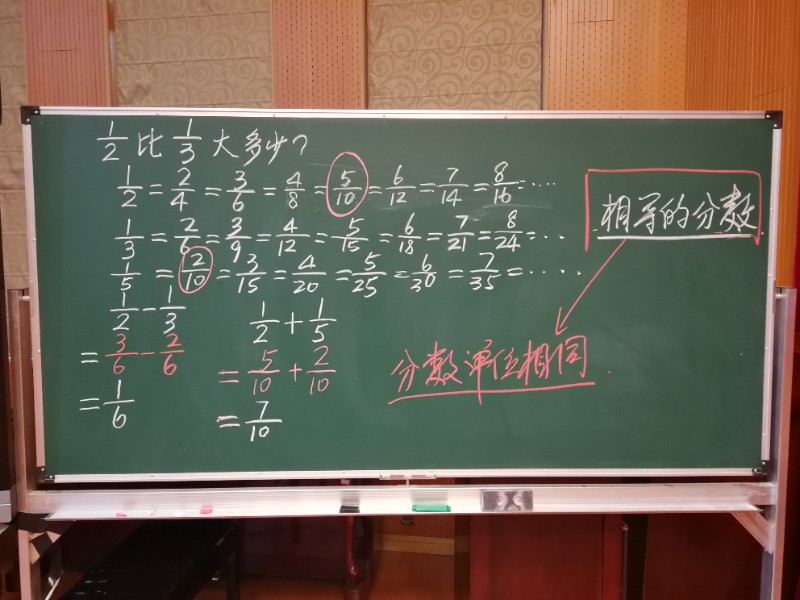 1/2 比 1/3 大多少?
1/2 = 2/4 = 3/6 = 4/8 = 5/10 = 6/12 = 7/14 = 8/16 = ····
1/3 = 2/6 = 3/9 = 4/12 = 5/15 = 6/18 = 7/21 = 8/24 = ···
1/5 = 2/10 = 3/15 = 4/20 = 5/25 = 6/30 = 7/35 = ·····
1/2 - 1/3
= 3/6 - 2/6
= 1/6
1/2 + 1/5
= 5/10 + 2/10
= 7/10
相等的分数
分数单位相同